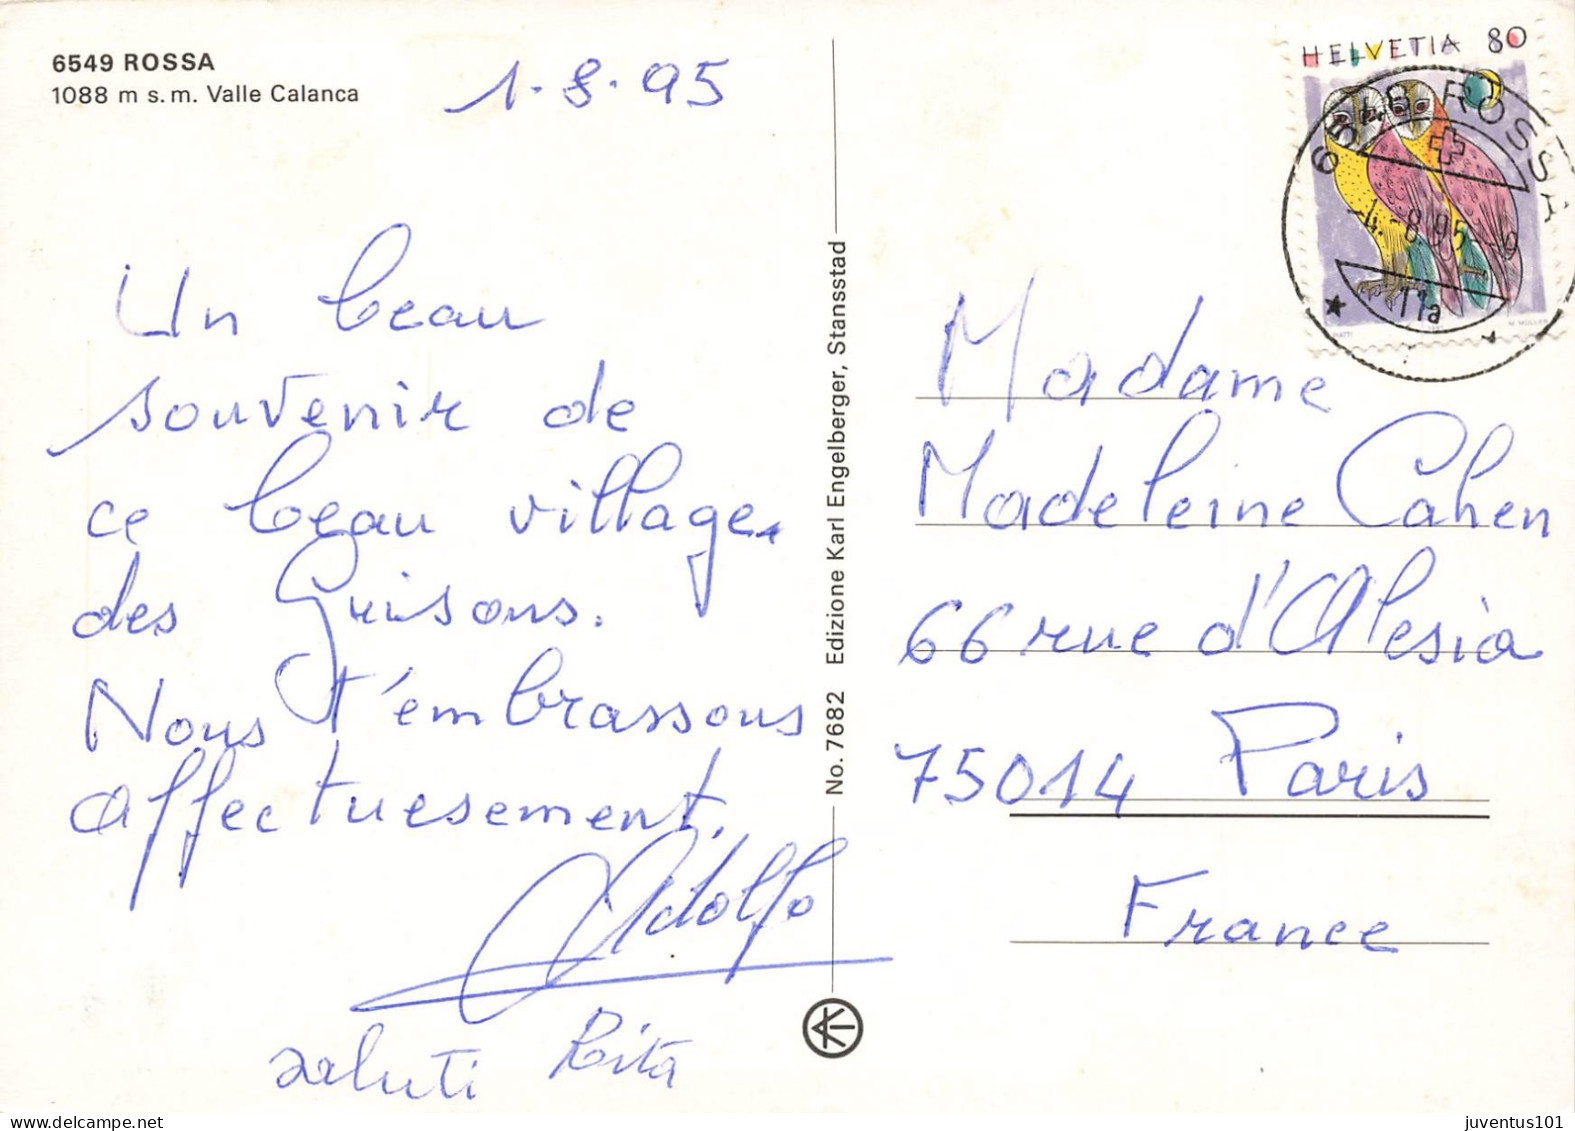 6549 ROSSA
1088 m s.m. Valle Calanca
1.8.95
Un beau
souvenir de
ce beau village
des Grisons.
Nous t'embrassons
affectuesement.
Adolfo
saluti Rita
No. 7682 Edizione Karl Engelberger, Stansstad
HELVETIA 80
ROSSA
-4.-8.95
11a
M. MÜLLER
Madame
Madeleine Cahen
66 rue d'Alesia
75014 Paris
France
juventus101